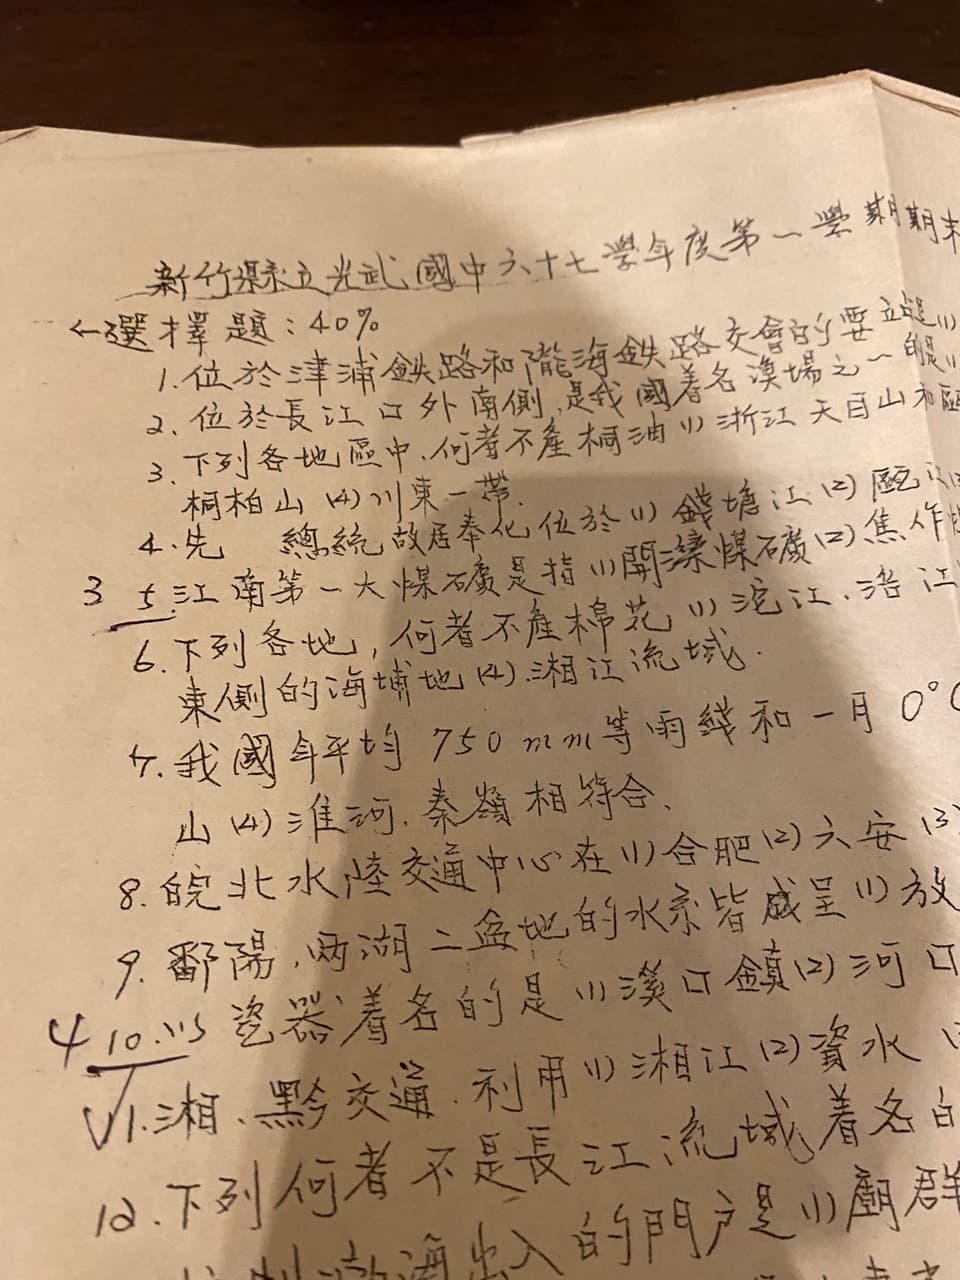 新竹縣立光武國中六十七學年度第一學期期末
選擇題:40%
1.位於津浦鉄路和隴海鉄路交會的要站是(1)
2.位於長江口外南側,是我國着名漁場之一的是(1)
3.下列各地區中,何者不產桐油(1)浙江天目山和
桐柏山(4)川東一帶.
4.先 總統故居奉化位於(1)錢塘江(2)甌江
3 5.江南第一大煤礦是指(1)開灤煤礦(2)焦作
6.下列各地,何者不產棉花(1)沱江.涪江
東側的海埔地(4).湘江流域.
7.我國年平均750mm等雨綫和一月0°C
山(4)淮河.秦嶺相符合.
8.皖北水陸交通中心在(1)合肥(2)六安(3)
9.鄱陽.两湖二盆地的水系皆咸呈(1)放
4 10.以瓷器着名的是(1)溪口鎮(2)河口
11.湘.黔交通.利用(1)湘江(2)資水
12.下列何者不是長江流域着名的
出入的門户是(1)廟群